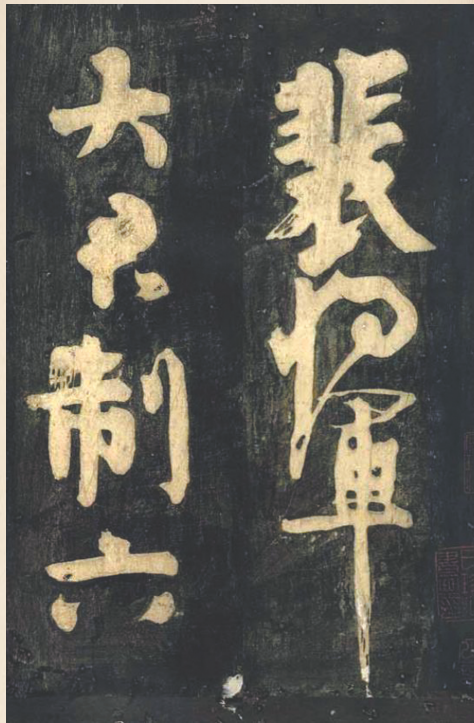 裴將軍
大君制六